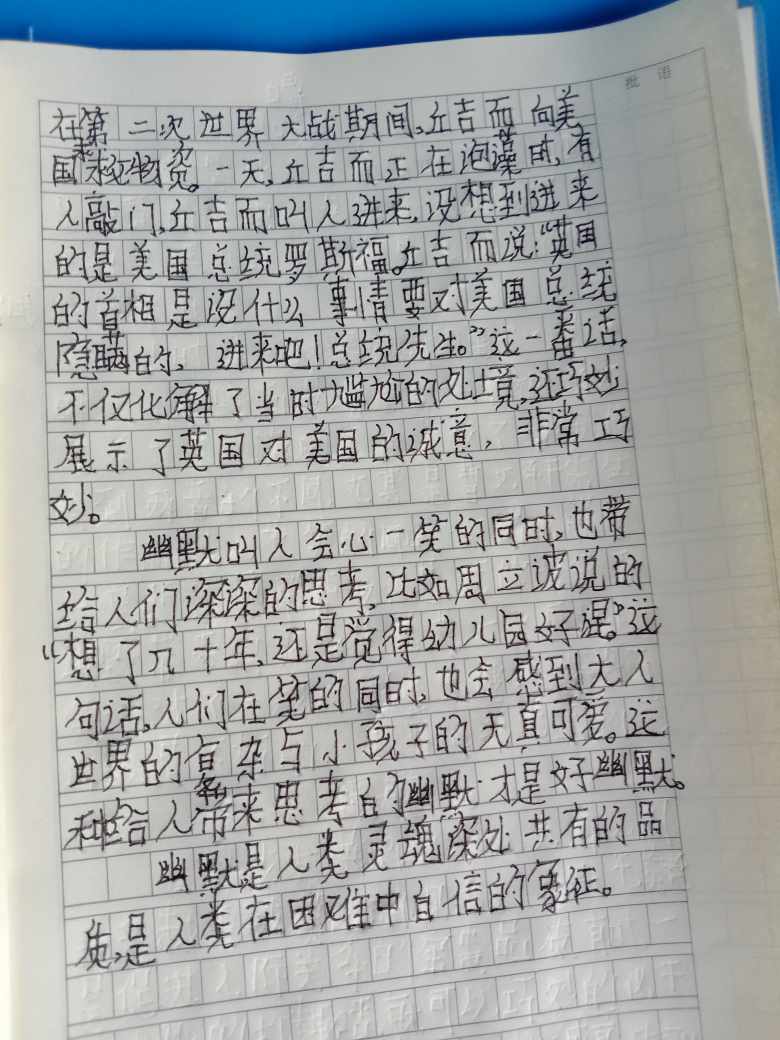 批语
在第二次世界大战期间,丘吉而向美
国求极物资。一天,丘吉而正在泡澡时,有
人敲门,丘吉而叫人进来,没想到进来
的是美国总统罗斯福。丘吉而说:“英国
的首相是没什么事情要对美国总统
隐瞒的,进来吧!总统先生。”这一番话,
不仅化解了当时尴尬的处境,还巧妙
展示了英国对美国的诚意,非常巧
妙。
幽默叫人会心一笑的同时,也带
给人们深深的思考,比如周立波说的
“想了几十年,还是觉得幼儿园好混。”这
句话,人们在笑的同时,也会感到大人
世界的复杂与小孩子的无真可爱。这
种给人带来思考的幽默才是好幽默。
幽默是人类灵魂深处共有的品
质,是人类在困难中自信的象征。